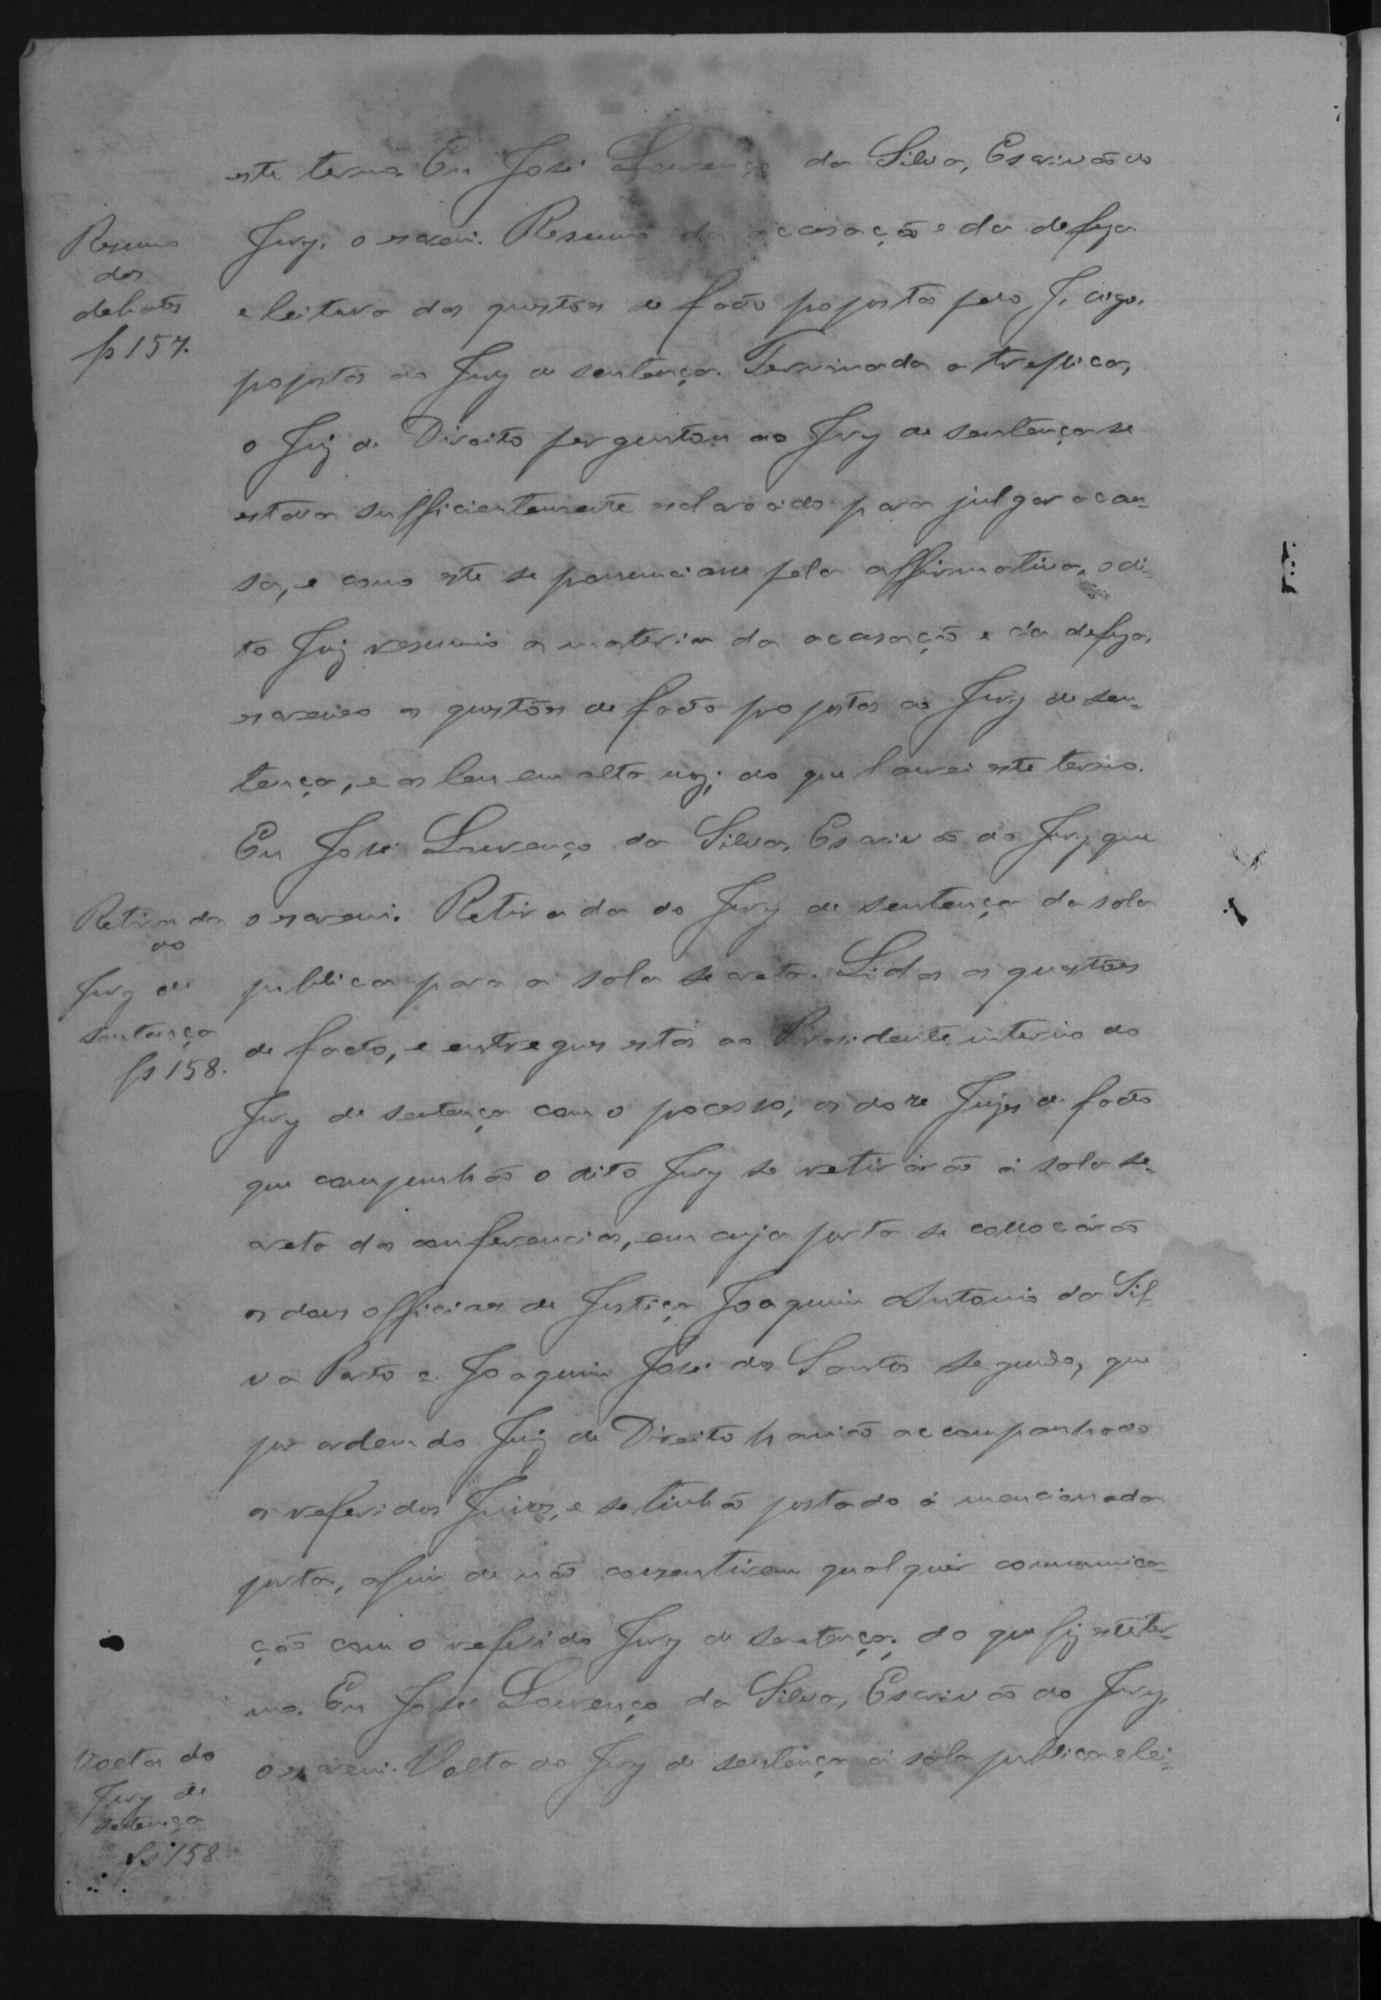 este termo. Eu José Lourenço da Silva, Escrivão do
Resumo
dos
debates
fs 157.
Jury, o escrevi. Resumo da accusação e da defeza
e leitura das questões de facto propostas pelo, J, digo,
propostas ao Jury de sentença. Terminada a treplica,
o Juiz de Direito perguntou ao Jury de sentença se
estava sufficientemente esclarecido para julgar a cau-
sa, e como este se pronunciasse pela affirmativa, o di-
to Juiz resumio a materia da accusação e da defeza,
escreveo as questões de facto propostas ao Jury de sen-
tença, e as leu em alta voz; do que lavrei este termo.
Eu José Lourenço da Silva, Escrivão do Jury que
Retirada
do
Jury de
sentença
fs 158.
o escrevi. Retirada do Jury de sentença da sala
publica para a sala secreta. Lidas as questões
de facto, e entregues estas ao Presidente interino do
Jury de sentença com o pocesso, os doze Juizes de facto
que compunhão o dito Jury se retirárão á sala se-
creta das conferencias, em cuja porta se collocárão
os dous officiaes de Justiça Joaquim Antonio da Sil
va Porto e Joaquim José dos Santos Segundo, que
por ordem do Juiz de Direito havião accompanhado
os referidos Juizes, e se tinhão postado á mencionada
porta, afim de não consentirem qualquer communica-
ção com o referido Jury de sentença; do que fiz este ter-
mo. Eu José Lourenço da Silva, Escrivão do Jury,
Volta do
Jury de
sentença
fs 158
o escrevi. Volta do Jury de sentença á sala publica e lei-